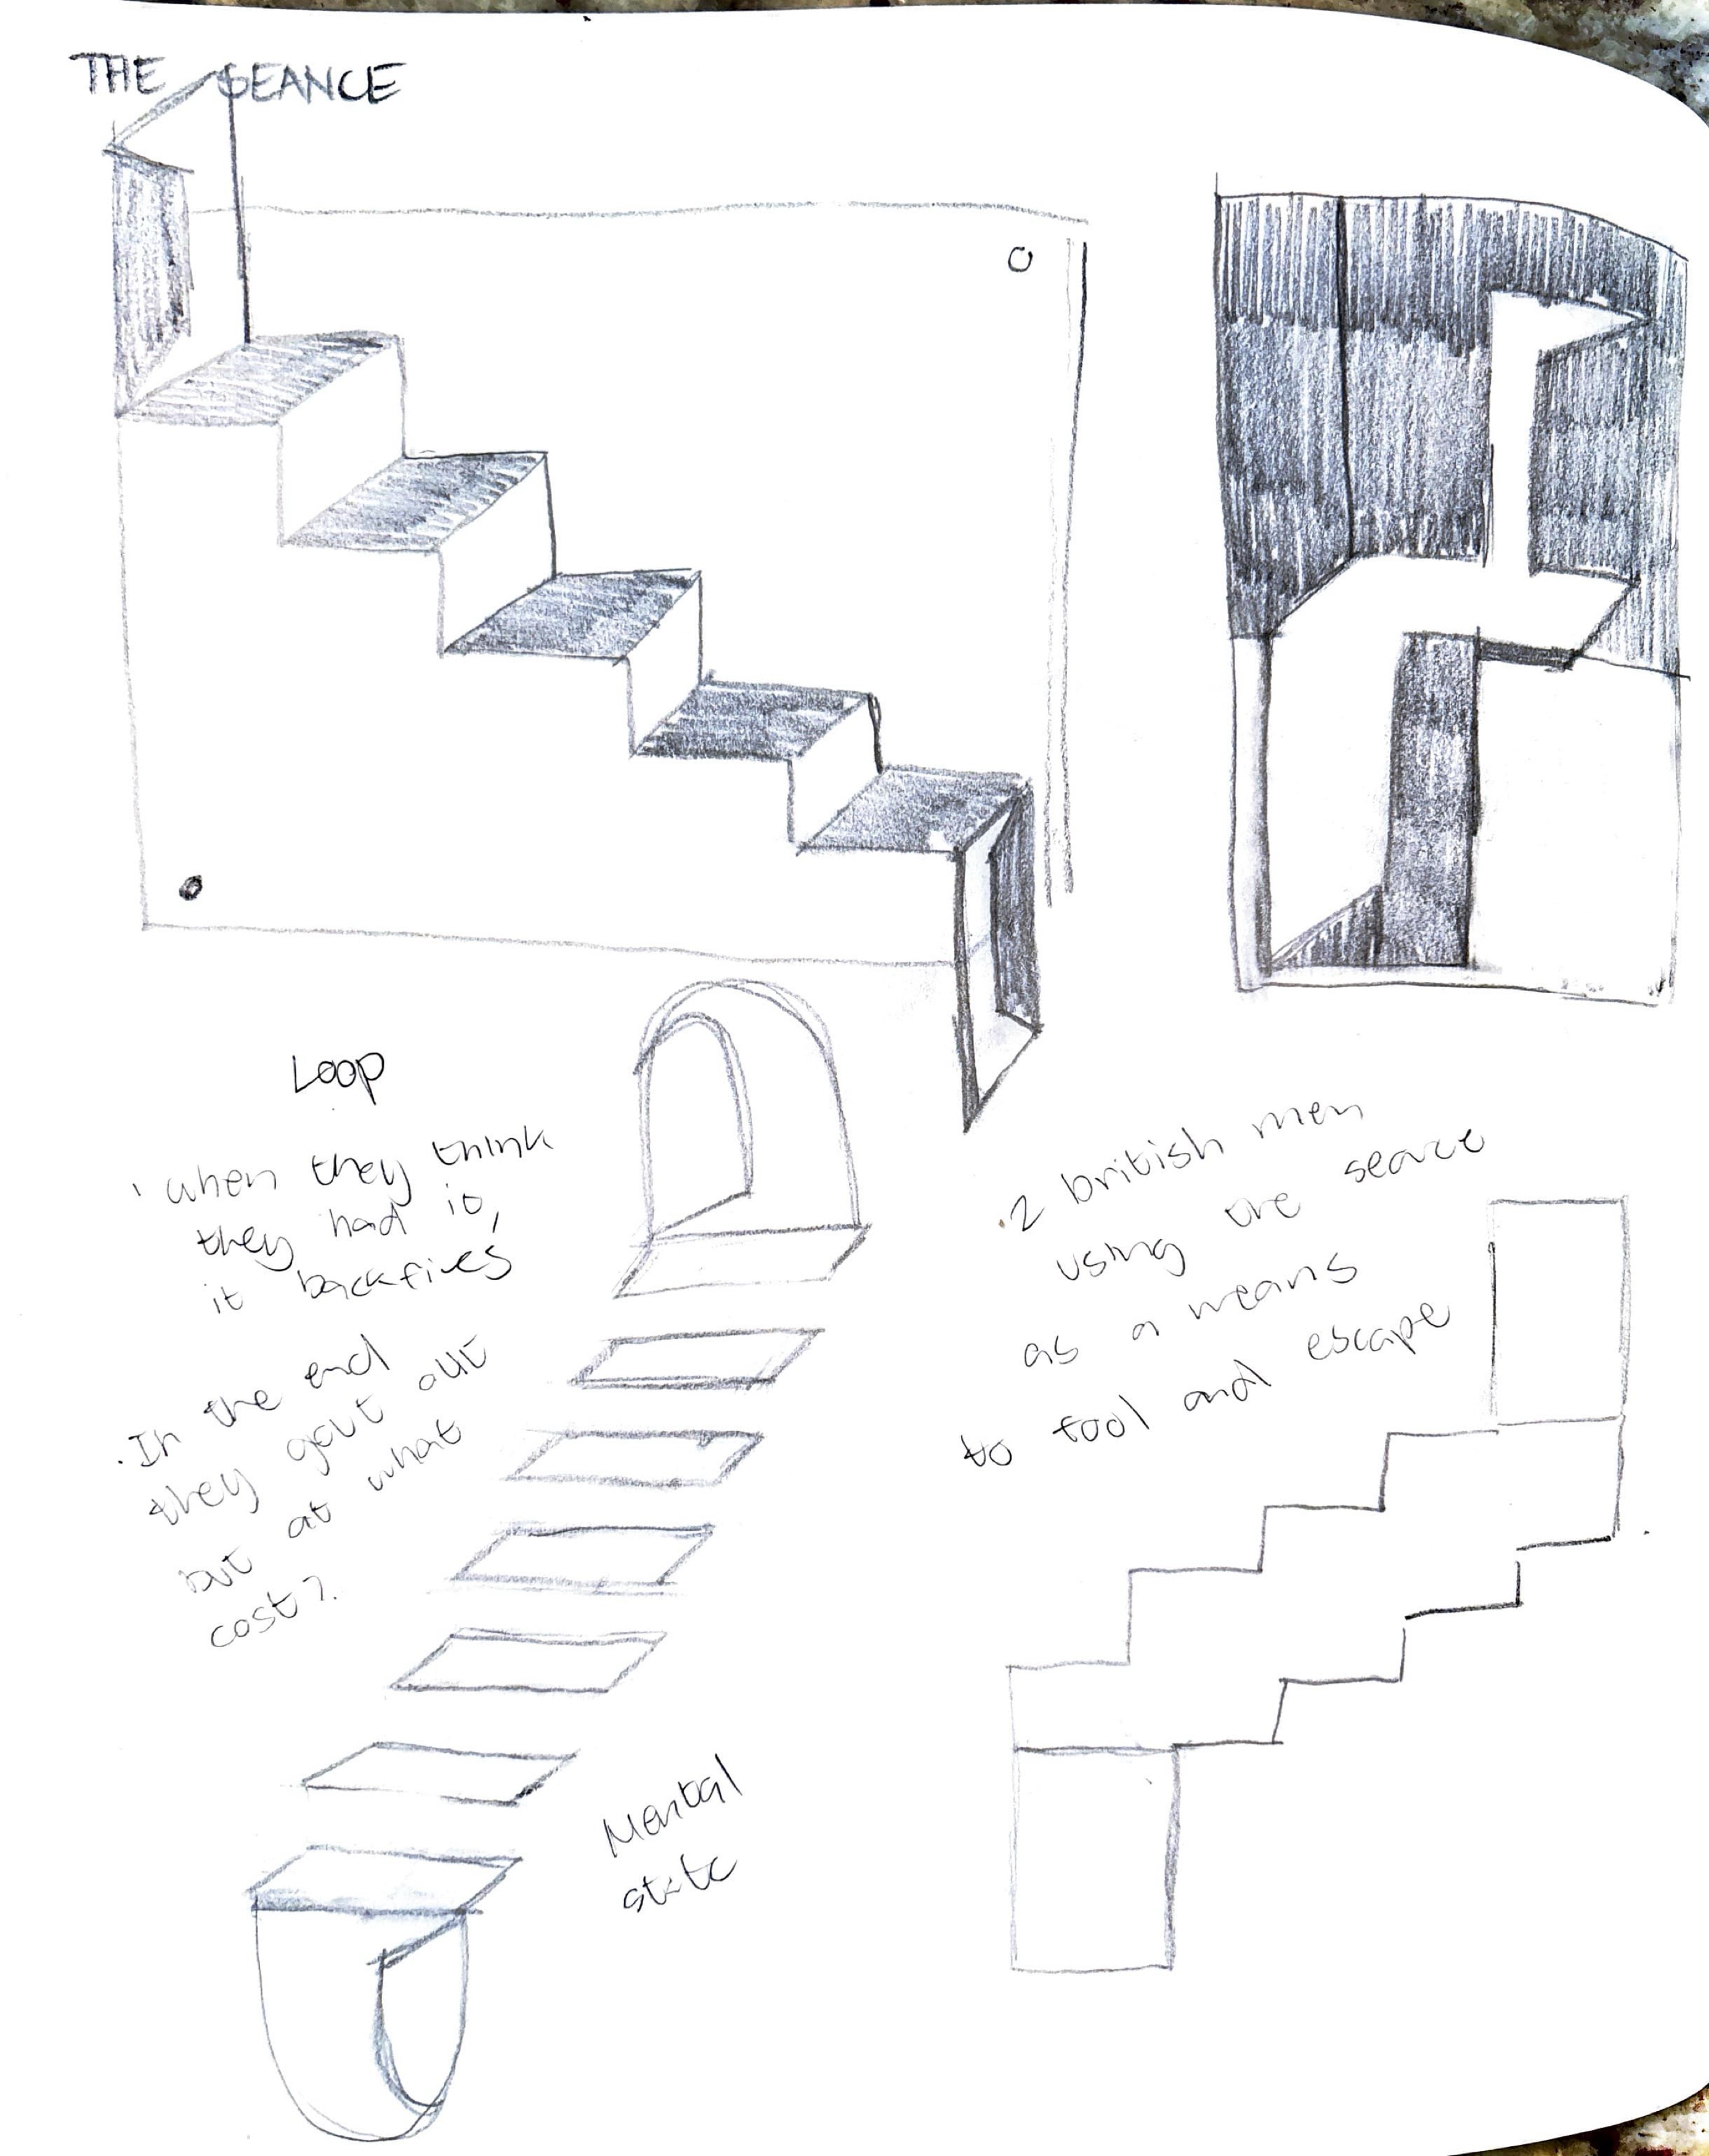 THE SEANCE
Loop
· when they think
they had it,
it backfires
· In the end
they gout out
but at what
cost?
· 2 british men
using the seance
as a means
to fool and escape
Mental
state